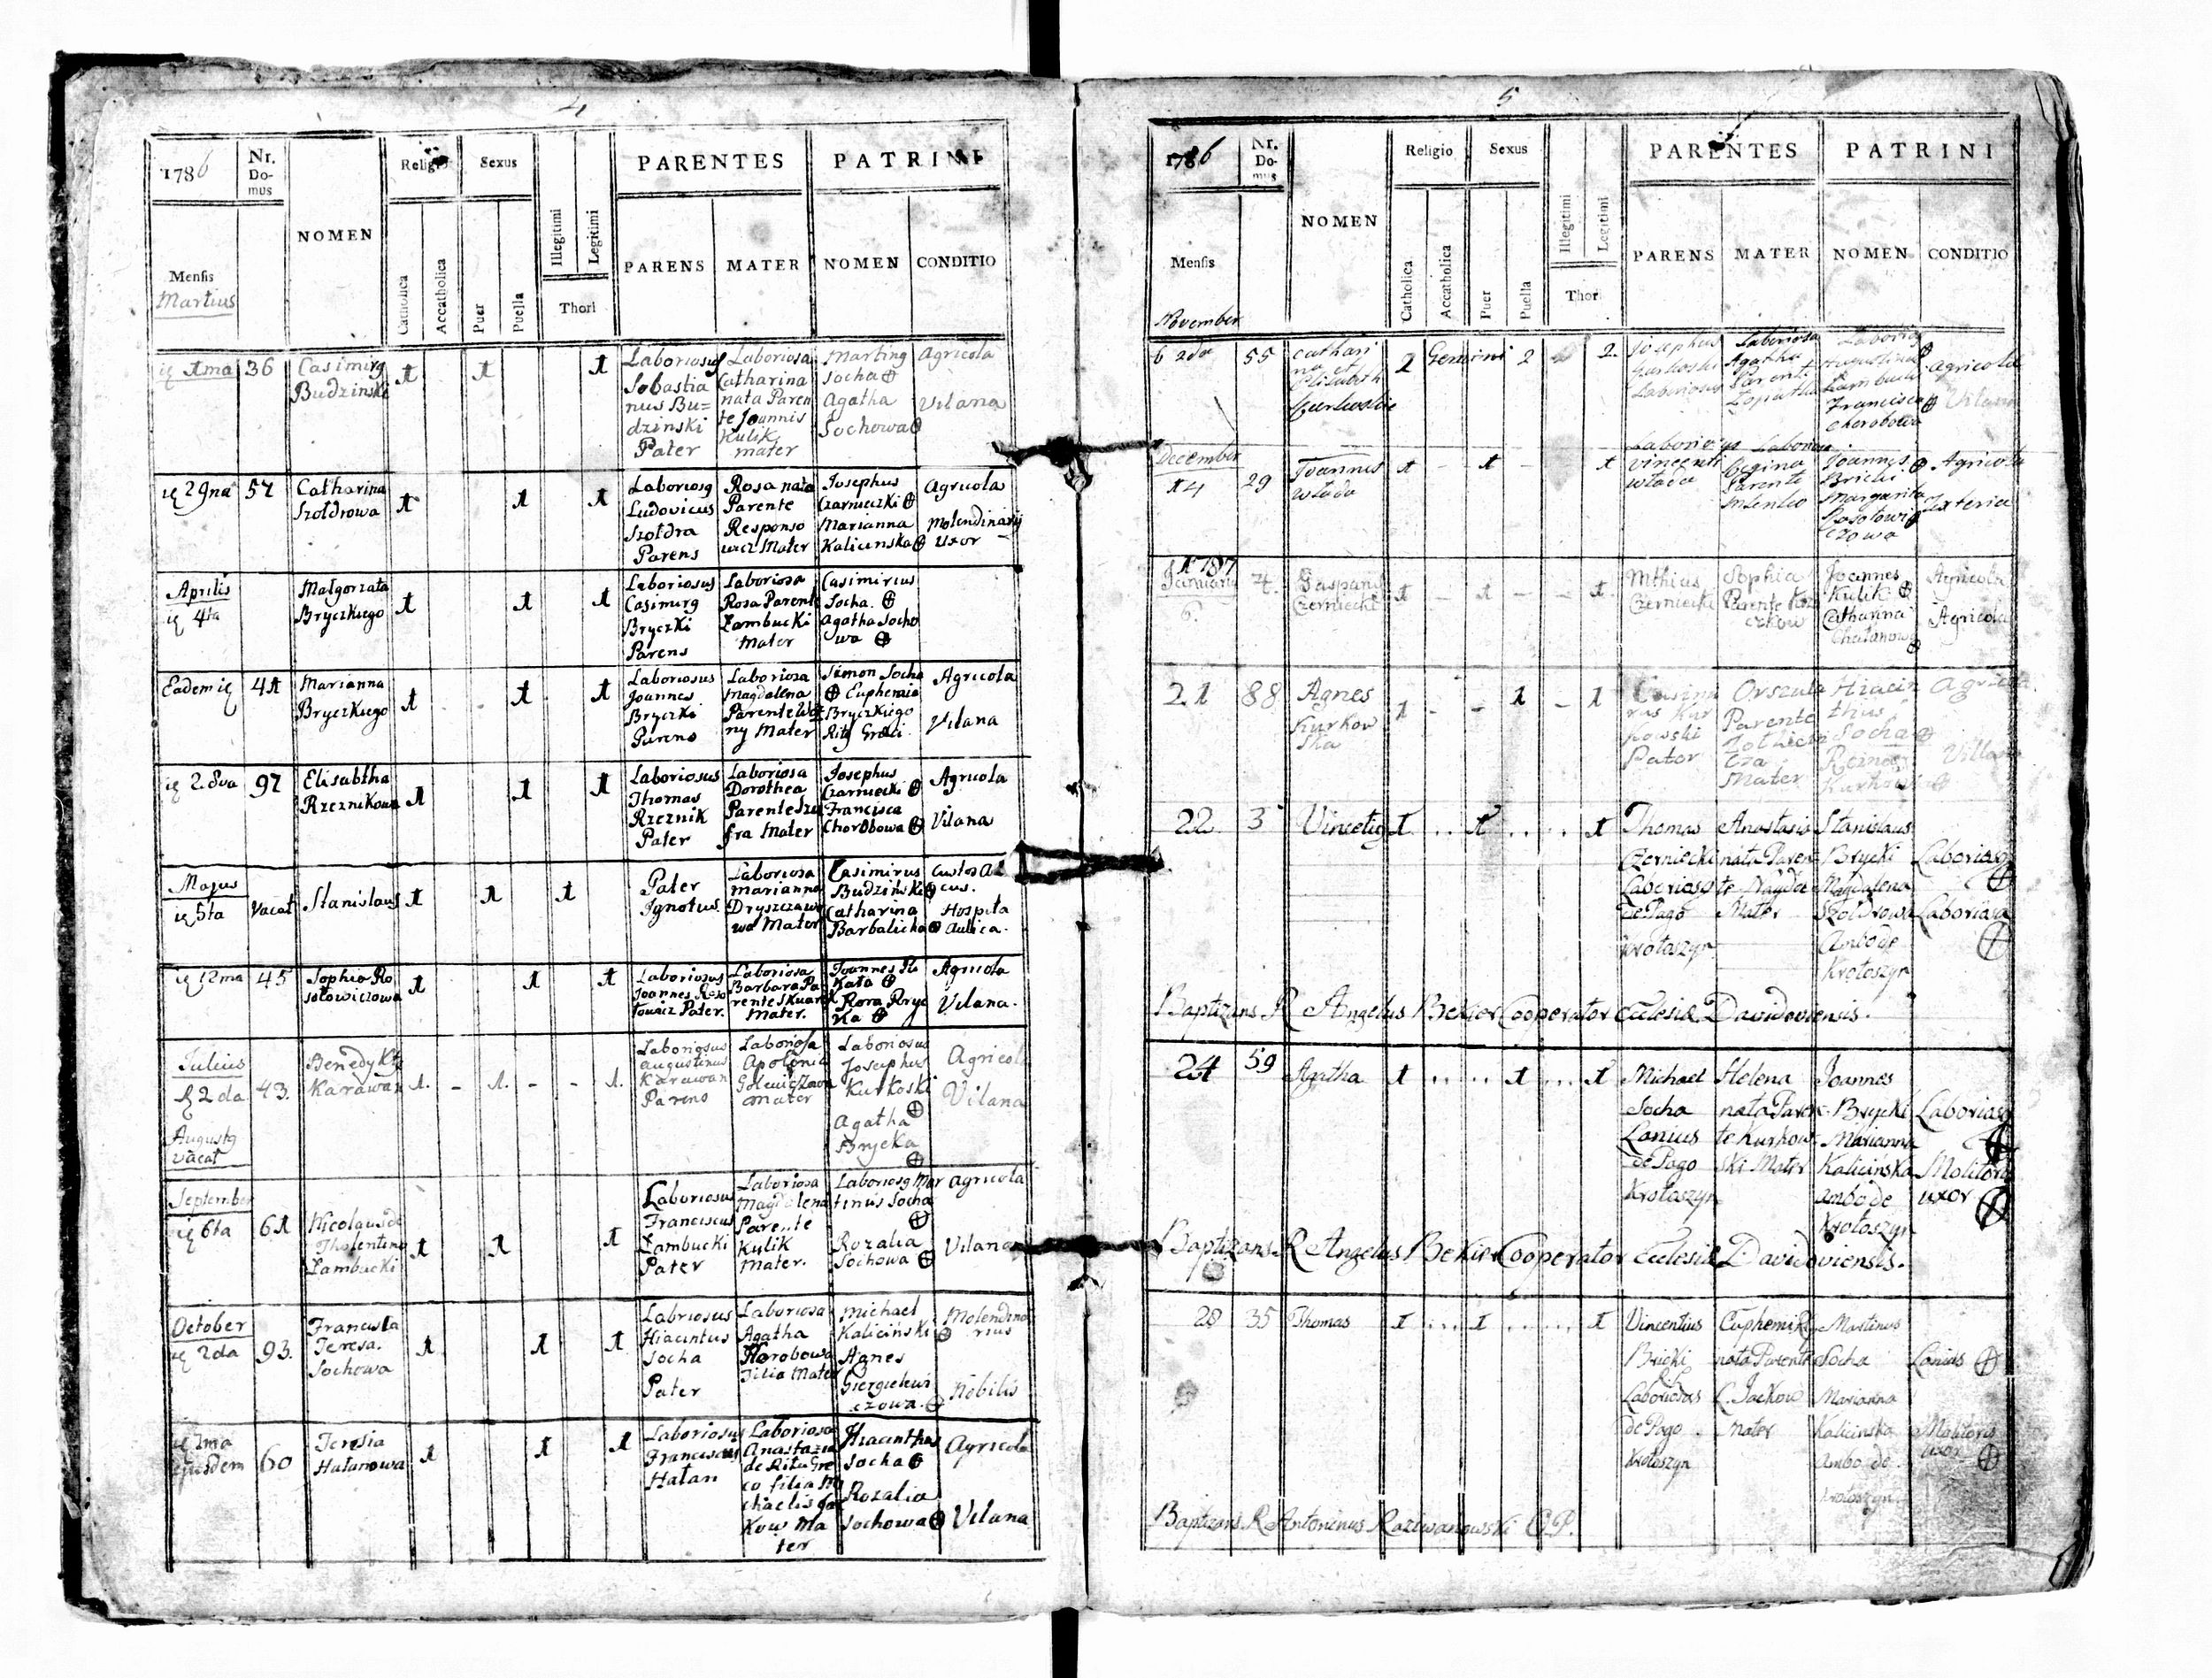 4
1786
Nr.
Do-
mus
NOMEN
Religio
Sexus
PARENTES
PATRINI
Mensis
Martius
Catholica
Accatholica
Puer
Puella
Illegitimi
Legitimi
Thori
PARENS
MATER
NOMEN
CONDITIO
36
Casimirg
Budzinski
1
1
1
Laboriosus
Sebastia
nus Bu=
dzinski
Pater
Laboriosa
Catharina
nata Paren
te Joannis
Kulik
mater
Marting
Socha
Agatha
Sochowa
Agricola
Vilana
29na
57
Catharina
Szołdrowa
1
1
1
Laboriosg
Ludovicus
Szołdra
Parens
Rosa nata
Parente
Responso
wicz Mater
Josephus
Czarnieczki
Marianna
Kalicinska
Agricola
Molendinarij
Uxor
Aprilis
4ta
Małgorzata
Bryczkiego
1
1
1
Laboriosus
Casimirg
Bryczki
Parens
Laboriosa
Rosa Parente
Łambucki
Mater
Casimirus
Socha
Agatha Socho
wa
Eadem
41
Marianna
Bryczkiego
1
1
1
Laboriosus
Joannes
Bryczki
Parens
Laboriosa
Magdalena
Parente
ny Mater
Simon Socha
Euphemia
Bryczkiego
Agricola
Vilana
28va
97
Elisabtha
Rzeznikowa
1
1
1
Laboriosus
Thomas
Rzeznik
Pater
Laboriosa
Dorothea
Parente Szu
fra Mater
Josephus
Czarniecki
Francisca
Chorobowa
Agricola
Vilana
Majus
5ta
Vacat
Stanislaus
1
1
1
Pater
Ignotus
Laboriosa
Marianna
Dryszczaw
wa Mater
Casimirus
Budzinski
Catharina
Barbalicha
Custos
Hospita
Aulica.
12ma
45
Sophia Ro
sołowiczowa
1
1
1
Laboriosus
Joannes Roso
łowicz Pater.
Laboriosa
Barbara Pa
rente Skwar
Mater.
Joannes
Rosa Bryc
ka
Agricola
Vilana.
Julius
2da
43.
Benedykt
Karawan
1.
1.
1.
Laboriosus
Augustinus
Karawan
Parens
Laboriosa
Apolonia
mater
Laboriosus
Josephus
Kurkoski
Agatha
Brycka
Agricola
Vilana
Augustg
vacat
September
6ta
61
Nicolaus de
Tholentino
Łambucki
1
1
1
Laboriosus
Franciscus
Łambucki
Pater
Laboriosa
Magdalena
Parente
Kulik
Mater.
Laboriosg Mar
tinus Socha
Rozalia
Sochowa
Agricola
Vilana
October
2da
93.
Francisca
Teresa.
Sochowa
1
1
1
Labriosus
Hiacintus
Socha
Pater
Laboriosa
Agatha
Horobowa
Filia Mater
Michael
Kaliciński
Agnes
Giergielewi
czowa.
Molendina
rius
Nobilis
7ma
ejusdem
60
Teresia
Hałanowa
1
1
1
Laboriosus
Franciscus
Hałan
Laboriosa
Anastazia
de Ritu Gre
co filia Mi
chaelis Jac
kow Ma
ter
Hiacinthus
Socha
Rozalia
Sochowa
Agricola
Vilana
5
1786
Nr.
Do-
mus
NOMEN
Religio
Sexus
PARENTES
PATRINI
Mensis
November
Catholica
Accatholica
Puer
Puella
Illegitimi
Legitimi
Thori
PARENS
MATER
NOMEN
CONDITIO
55
Cathari
na et
Elisabeth
Kurkoskie
2
Gemini
2
2.
Josephus
Kurkoski
Laboriosus
Laboriosa
Agatha
Parente
Łopatka
Augustinus
Francisca
Chorobowa
Agricola
Vilana
December
14
29
Joannes
Włada
1
1
1
Laboriosus
Vincenti
Włada
Laboriosa
Regina
Parente
Joannes
Bricki
Margarita
Rosołowi
czowa
Agricola
Exteria
1787
Januarij
6.
4.
Gaspar
Czerniecki
1
1
1.
Mthius
Czerniecki
Sophia
Parente
Joannes
Kulik
Catharina
Chałanowa
Agricola
Agricola
21
88
Agnes
Kurkow
ska
1
1
1
Casimi
rus Kur
kowski
Pater
Orszula
Parente
Mater
Hiacin
thus
Socha
Agricola
Villana
22
3
Vincetig
1
1
1
Thomas
Czerniecki
Laboriosg
de Pago
Krotoszyn
Anastasia
nata Paren
te
Mater
Stanislaus
Brycki
Magdalena
Szołdrowa
Ambo de
Krotoszyn
Laboriosg
Laboriosa
Baptizans R Angelus Bekier Cooperator Eclesiæ Davidoviensis.
24
59
Agatha
1
1
1
Michael
Socha
Lanius
de Pago
Krotoszyn
Helena
nata Paren
te Kurkow
ski Mater
Joannes
Brycki
Marianna
Kalicińska
ambo de
Krotoszyn
Laboriosg
Molitoris
uxor
Baptizans R Angelus Bekier Cooperator Eclesiæ Davidoviensis.
28
35
Thomas
1
1
1
Vincentius
Bricki
Laboriosus
de Pago
Krotoszyn
Euphemia
nata Parente
Jackow
Mater
Martinus
Socha
Marianna
Kalicinska
Ambo de
Krotoszyn
Lanius
Molitoris
uxor
Baptizans R Antoninus Raziwanowski